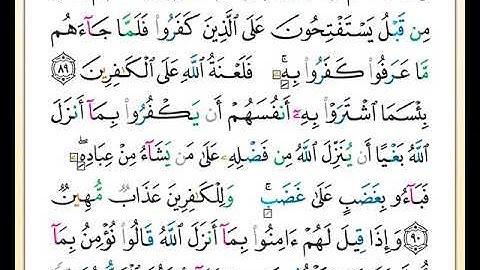 مِن قَبْلُ يَسْتَفْتِحُونَ عَلَى ٱلَّذِينَ كَفَرُوا۟ فَلَمَّا جَآءَهُم
مَّا عَرَفُوا۟ كَفَرُوا۟ بِهِۦ ۚ فَلَعْنَةُ ٱللَّهِ عَلَى ٱلْكَـٰفِرِينَ ٨٩
بِئْسَمَا ٱشْتَرَوْا۟ بِهِۦٓ أَنفُسَهُمْ أَن يَكْفُرُوا۟ بِمَآ أَنزَلَ
ٱللَّهُ بَغْيًا أَن يُنَزِّلَ ٱللَّهُ مِن فَضْلِهِۦ عَلَىٰ مَن يَشَآءُ مِنْ عِبَادِهِۦ ۖ
فَبَآءُو بِغَضَبٍ عَلَىٰ غَضَبٍ ۚ وَلِلْكَـٰفِرِينَ عَذَابٌ مُّهِينٌ ٩٠
وَإِذَا قِيلَ لَهُمْ ءَامِنُوا۟ بِمَآ أَنزَلَ ٱللَّهُ قَالُوا۟ نُؤْمِنُ بِمَآ